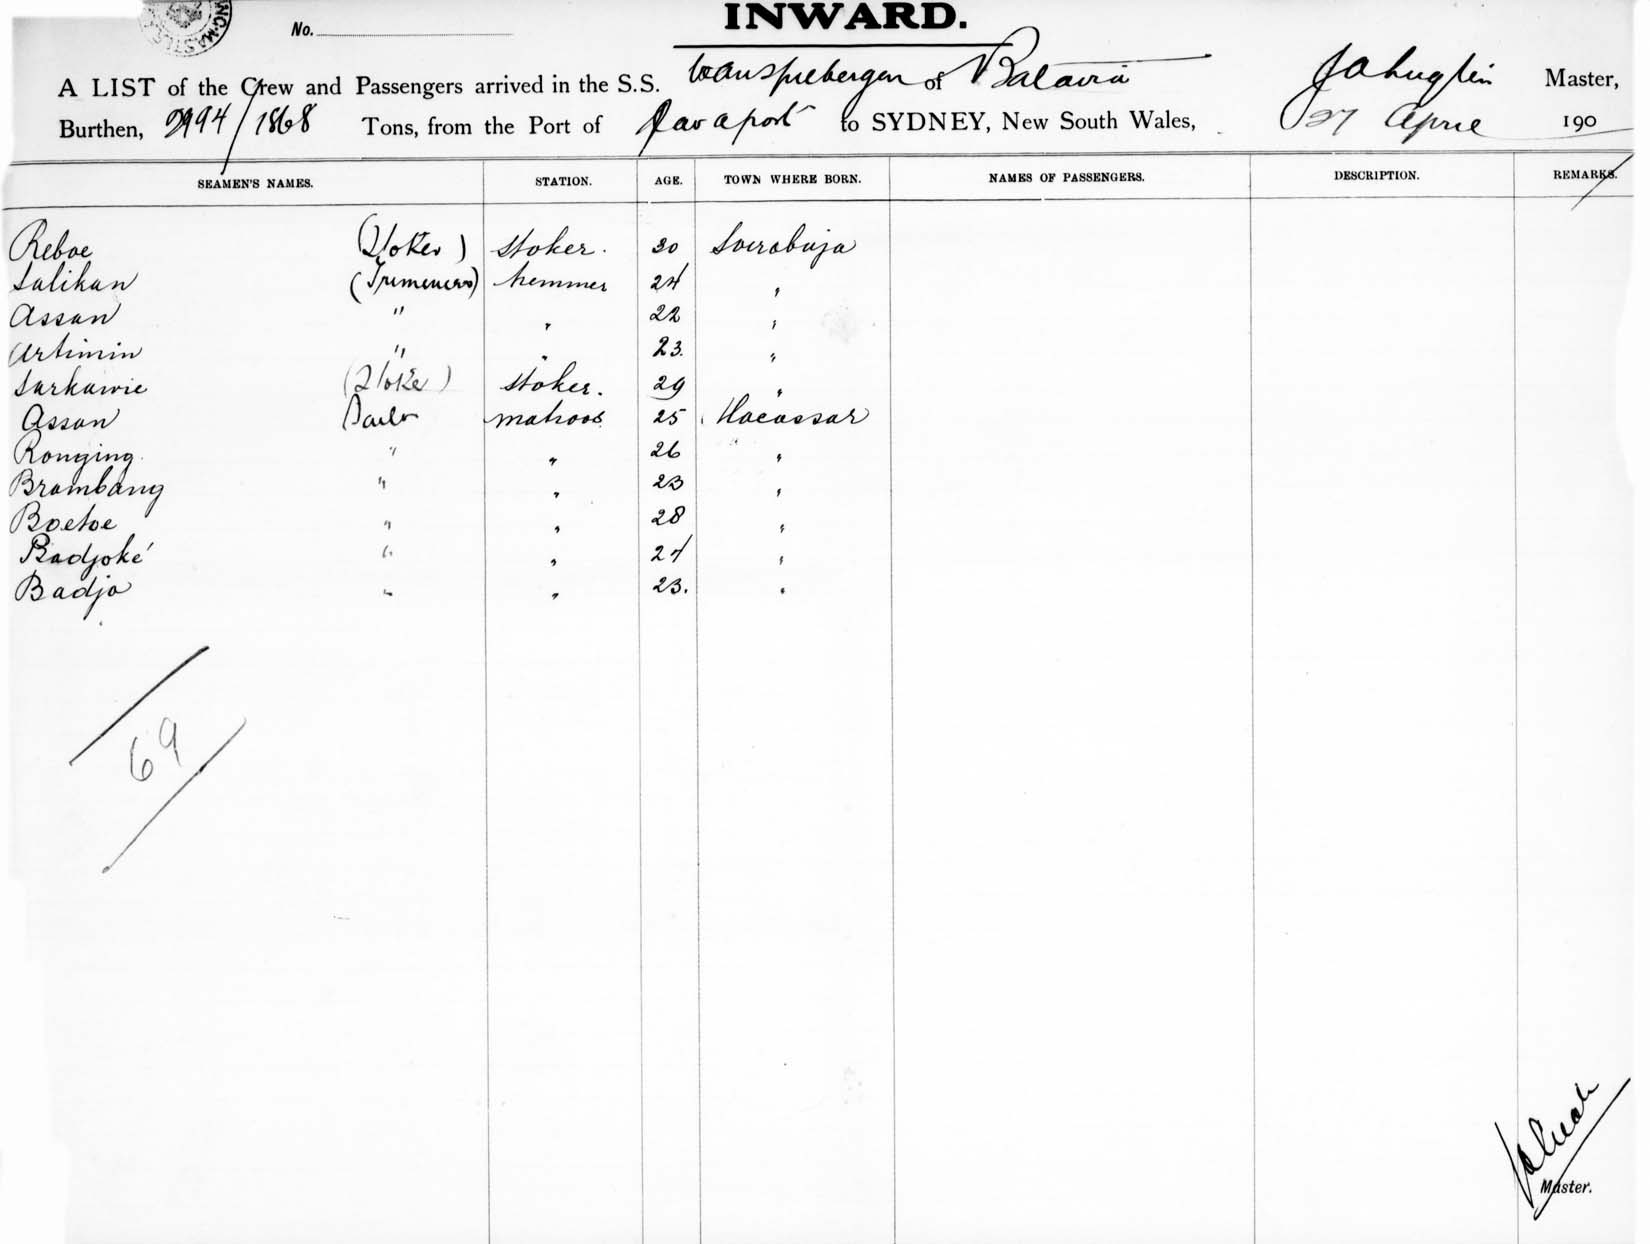 INWARD.
No.
A LIST of the Crew and Passengers arrived in the S.S. van Spilbergen of Batavia Master,
Burthen, 2994/1868 Tons, from the Port of Java port to SYDNEY, New South Wales, 27 April 190
SEAMEN'S NAMES. STATION. AGE. TOWN WHERE BORN. NAMES OF PASSENGERS. DESCRIPTION. REMARKS.
Reboe (Stoker) stoker. 30 Soerabaja
Salikan (Trimmers) tremmer 24 "
Assan " " 22 "
Artimin " " 23. "
Sarkawie (Stoker) stoker. 29 "
Assan Sailor matroos 25 Macassar
Ronging. " " 26 "
Brombang " " 23 "
Boetoe " " 28 "
Badjoké " " 24 "
Badjo " " 23. "
69
Master.